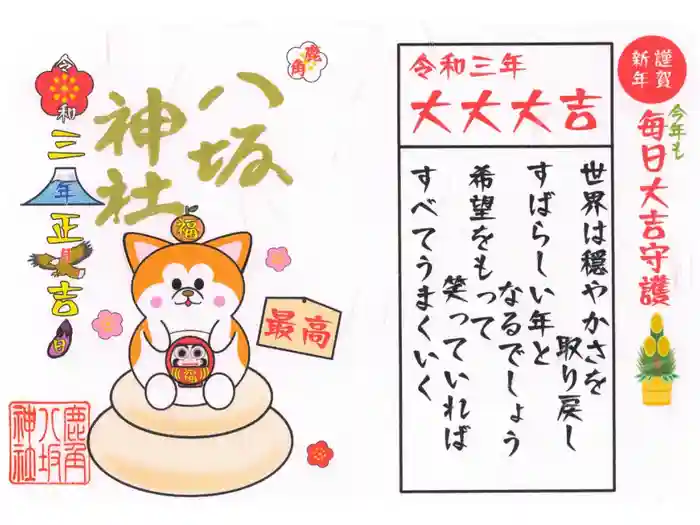 謹賀
新年
今年も
毎日大吉守護
令和三年
大大大吉
世界は穏やかさを
取り戻し
すばらしい年と
なるでしょう
希望をもって
笑っていれば
すべてうまくいく
鹿角
八坂
神社
令和三年正月吉日
福
最高
福
鹿角
八坂
神社